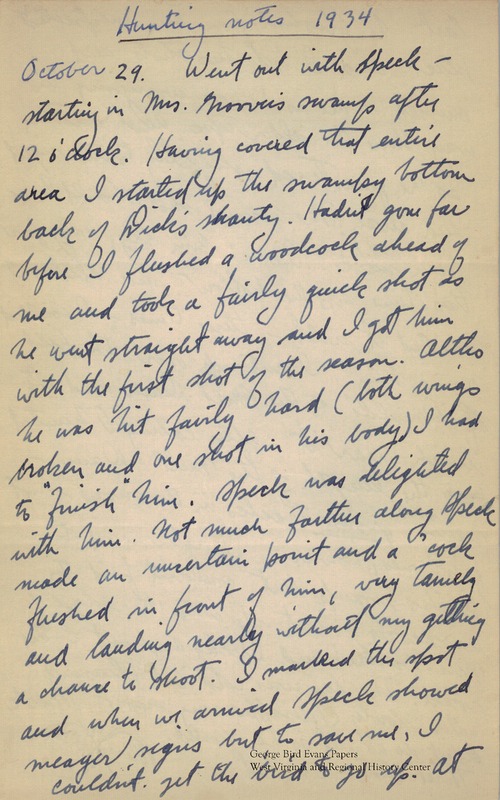 Hunting notes 1934
October 29. Went out with Speck –
starting in Mrs. Groover's swamp after
12 o'clock. Having covered that entire
area I started up the swampy bottom
back of Dick's shanty. Hadn't gone far
before I flushed a woodcock ahead of
me and took a fairly quick shot as
he went straight away and I got him
with the first shot of the season. Altho
he was hit fairly hard (both wings
broken and one shot in his body) I had
to "finish" him. Speck was delighted
with him. Not much farther along Speck
made an uncertain point and a 'cock
flushed in front of him, very tamely
and landing nearby without my getting
a chance to shoot. I marked the spot
and when we arrived Speck showed
meager signs but to save me, I
couldn't get the bird to go up. At
George Bird Evans Papers
West Virginia and Regional History Center